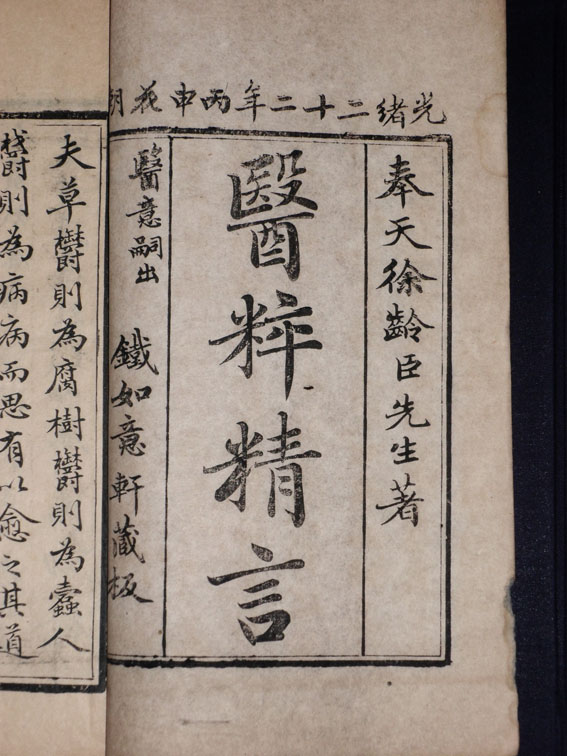 光緒二十二年丙申花朝
奉天徐齡臣先生著
醫粹精言
醫意嗣出
鐵如意軒藏板
夫草欝則為腐樹欝則為蠹人
欝則為病病而思有以愈之其道